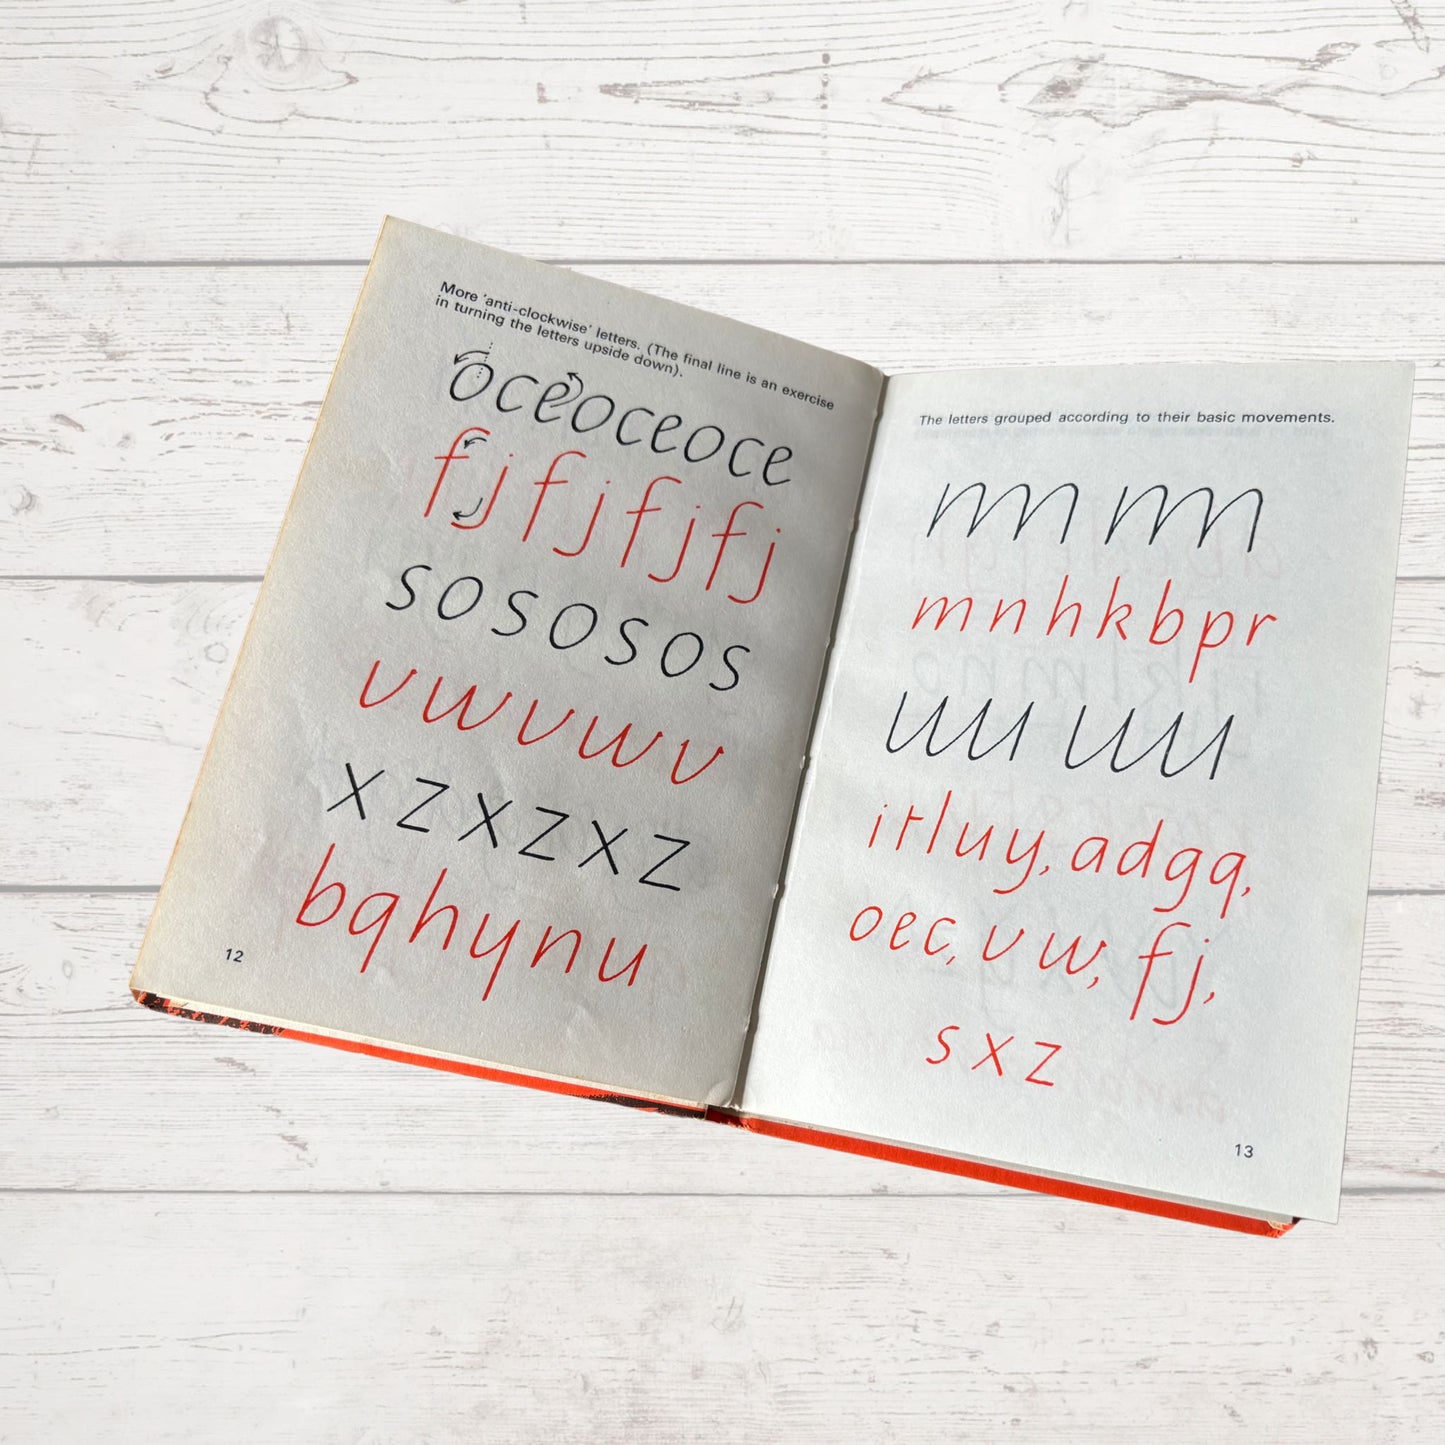 More 'anti-clockwise' letters. (The final line is an exercise
in turning the letters upside down).
oceoceoce
fjfjfjfj
sososos
vwvwv
xzxzxz
bqhynu
12
The letters grouped according to their basic movements.
mm
mnhkbpr
uu uu
itluy, adgq,
oec, vw, fj,
sxz
13